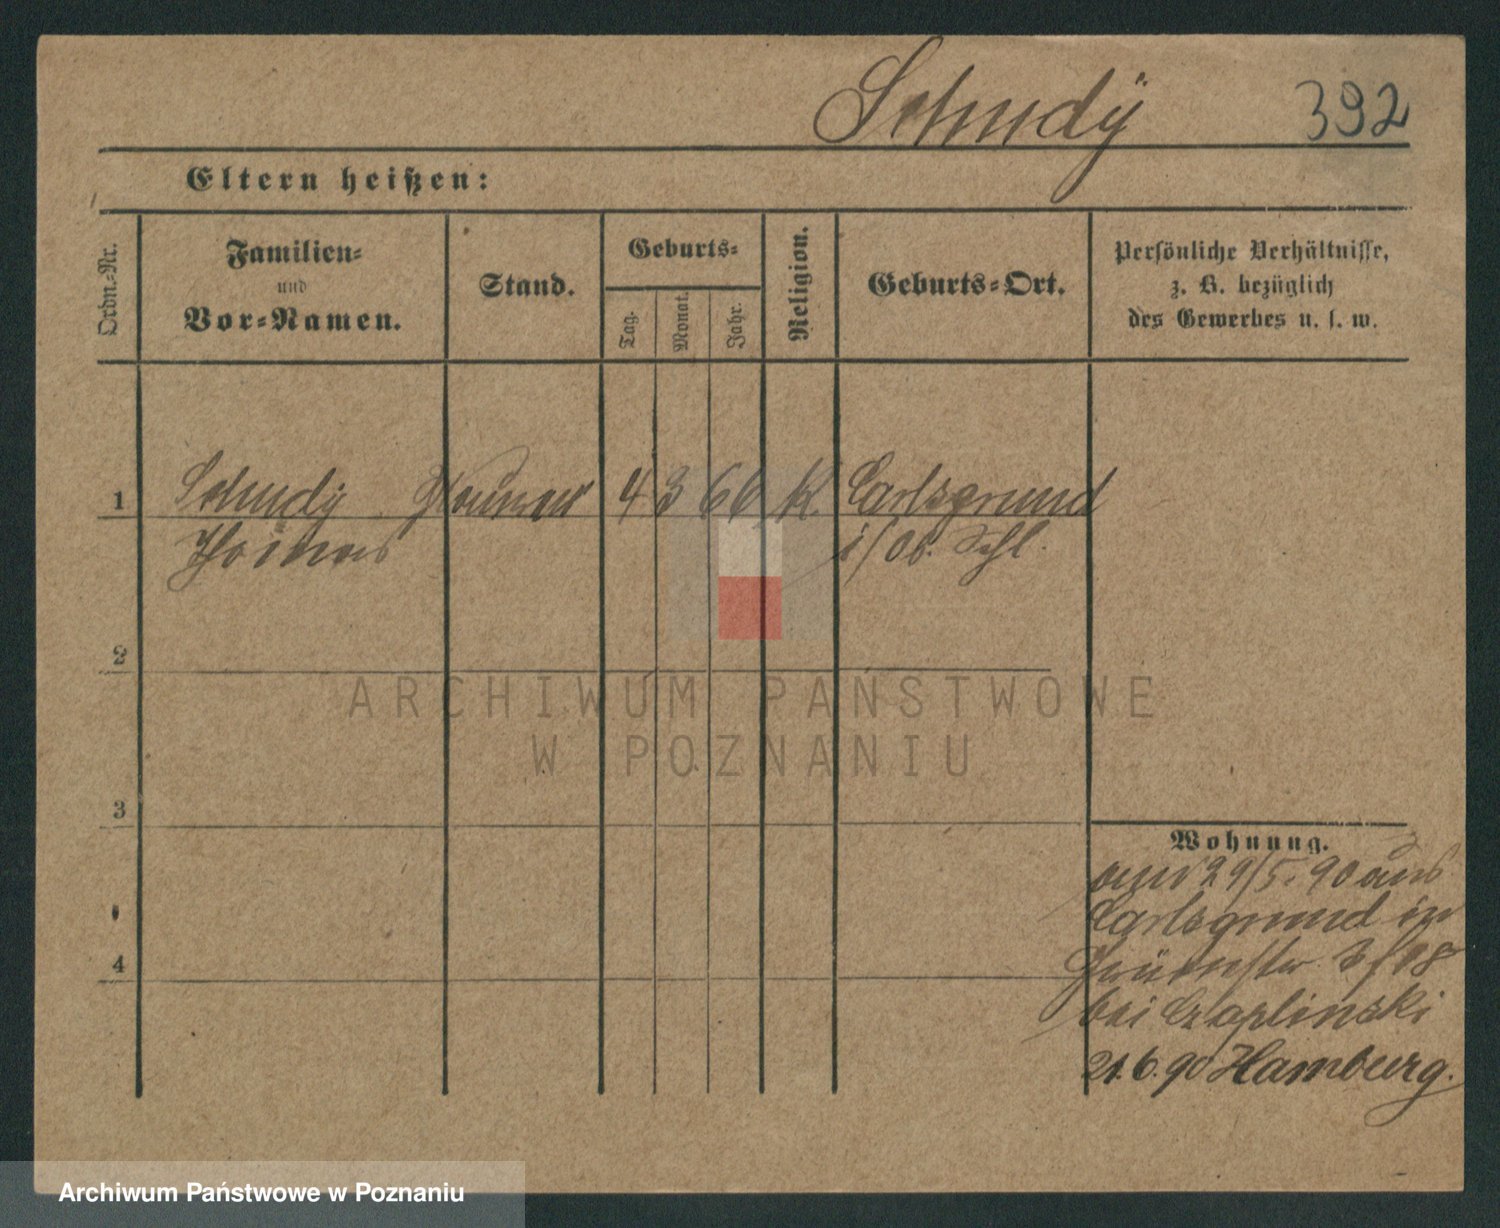 Schudÿ 392
Eltern heißen:
Ordn.-Nr.
Familien-
und
Vor-Namen.
Stand.
Geburts-
Tag.
Monat.
Jahr.
Religion.
Geburts-Ort.
Persönliche Verhältnisse,
z. B. bezüglich
des Gewerbes u. s. w.
1 Schudÿ 4 3 66 K. Carlsgrund
Thomas i/Ob. Schl.
2
ARCHIWUM PAŃSTWOWE
W POZNANIU
3
Wohnung.
29/5. 90 aus
Carlsgrund in
4
bei Czaplinski
21.6.90 Hamburg.
Archiwum Państwowe w Poznaniu